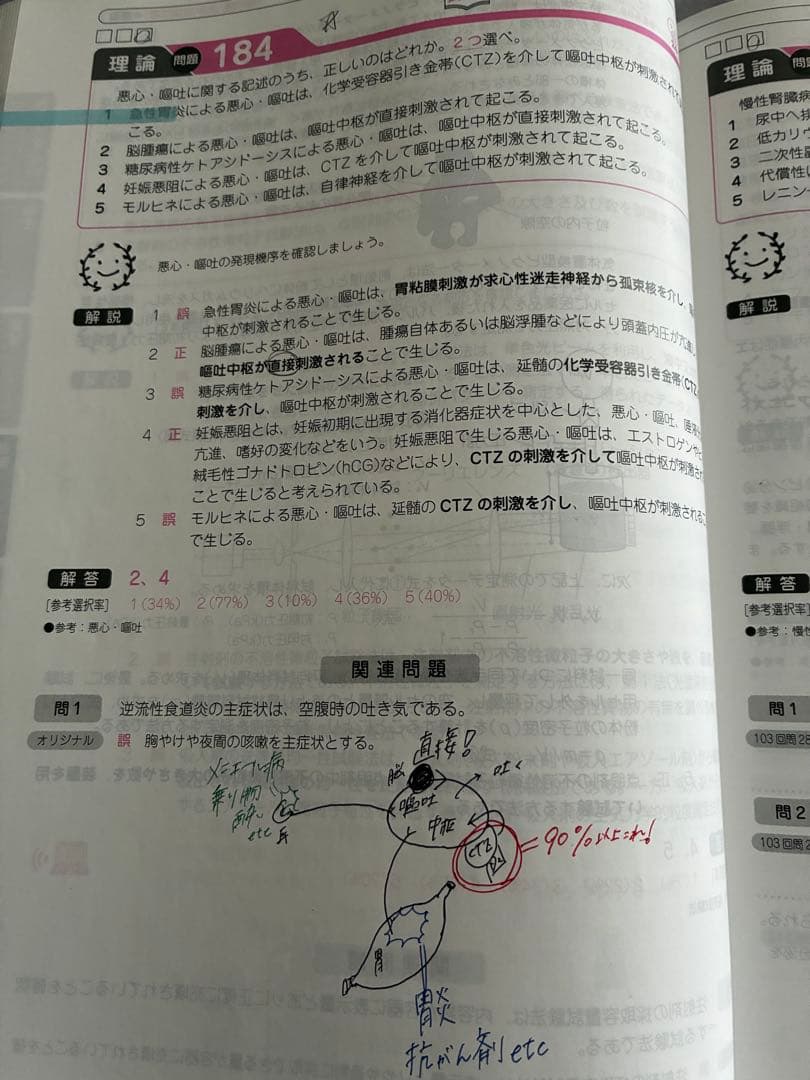 理論 問題 184
悪心・嘔吐に関する記述のうち、正しいのはどれか。2つ選べ。
1 急性胃炎による悪心・嘔吐は、化学受容器引き金帯(CTZ)を介して嘔吐中枢が刺激されて起
こる。
2 脳腫瘍による悪心・嘔吐は、嘔吐中枢が直接刺激されて起こる。
3 糖尿病性ケトアシドーシスによる悪心・嘔吐は、嘔吐中枢が直接刺激されて起こる。
4 妊娠悪阻による悪心・嘔吐は、CTZを介して嘔吐中枢が刺激されて起こる。
5 モルヒネによる悪心・嘔吐は、自律神経を介して嘔吐中枢が刺激されて起こる。
悪心・嘔吐の発現機序を確認しましょう。
解説 1 誤 急性胃炎による悪心・嘔吐は、胃粘膜刺激が求心性迷走神経から孤束核を介し、
中枢が刺激されることで生じる。
2 正 脳腫瘍による悪心・嘔吐は、腫瘍自体あるいは脳浮腫などにより頭蓋内圧が亢進し、
嘔吐中枢が直接刺激されることで生じる。
3 誤 糖尿病性ケトアシドーシスによる悪心・嘔吐は、延髄の化学受容器引き金帯(CTZ
刺激を介し、嘔吐中枢が刺激されることで生じる。
4 正 妊娠悪阻とは、妊娠初期に出現する消化器症状を中心とした、悪心・嘔吐、唾液
亢進、嗜好の変化などをいう。妊娠悪阻で生じる悪心・嘔吐は、エストロゲンや
絨毛性ゴナドトロピン(hCG)などにより、CTZの刺激を介して嘔吐中枢が刺激され
ことで生じると考えられている。
5 誤 モルヒネによる悪心・嘔吐は、延髄のCTZの刺激を介し、嘔吐中枢が刺激されるこ
で生じる。
解答 2、4
[参考選択率] 1(34%) 2(77%) 3(10%) 4(36%) 5(40%)
●参考：悪心・嘔吐
関連問題
問1 逆流性食道炎の主症状は、空腹時の吐き気である。
オリジナル 誤 胸やけや夜間の咳嗽を主症状とする。
直接!
脳
メニエール病
乗り物
酔い
etc
耳
嘔吐
中枢
吐く
CTZ
D2
=90%以上これ!
胃
胃炎
抗がん剤etc
理論 問題
慢性腎臓病
1 尿中へ排
2 低カリウ
3 二次性副
4 代償性に
5 レニン-
解説
解答
[参考選択率]
●参考：慢性
問1
103回問28
問2
103回問2